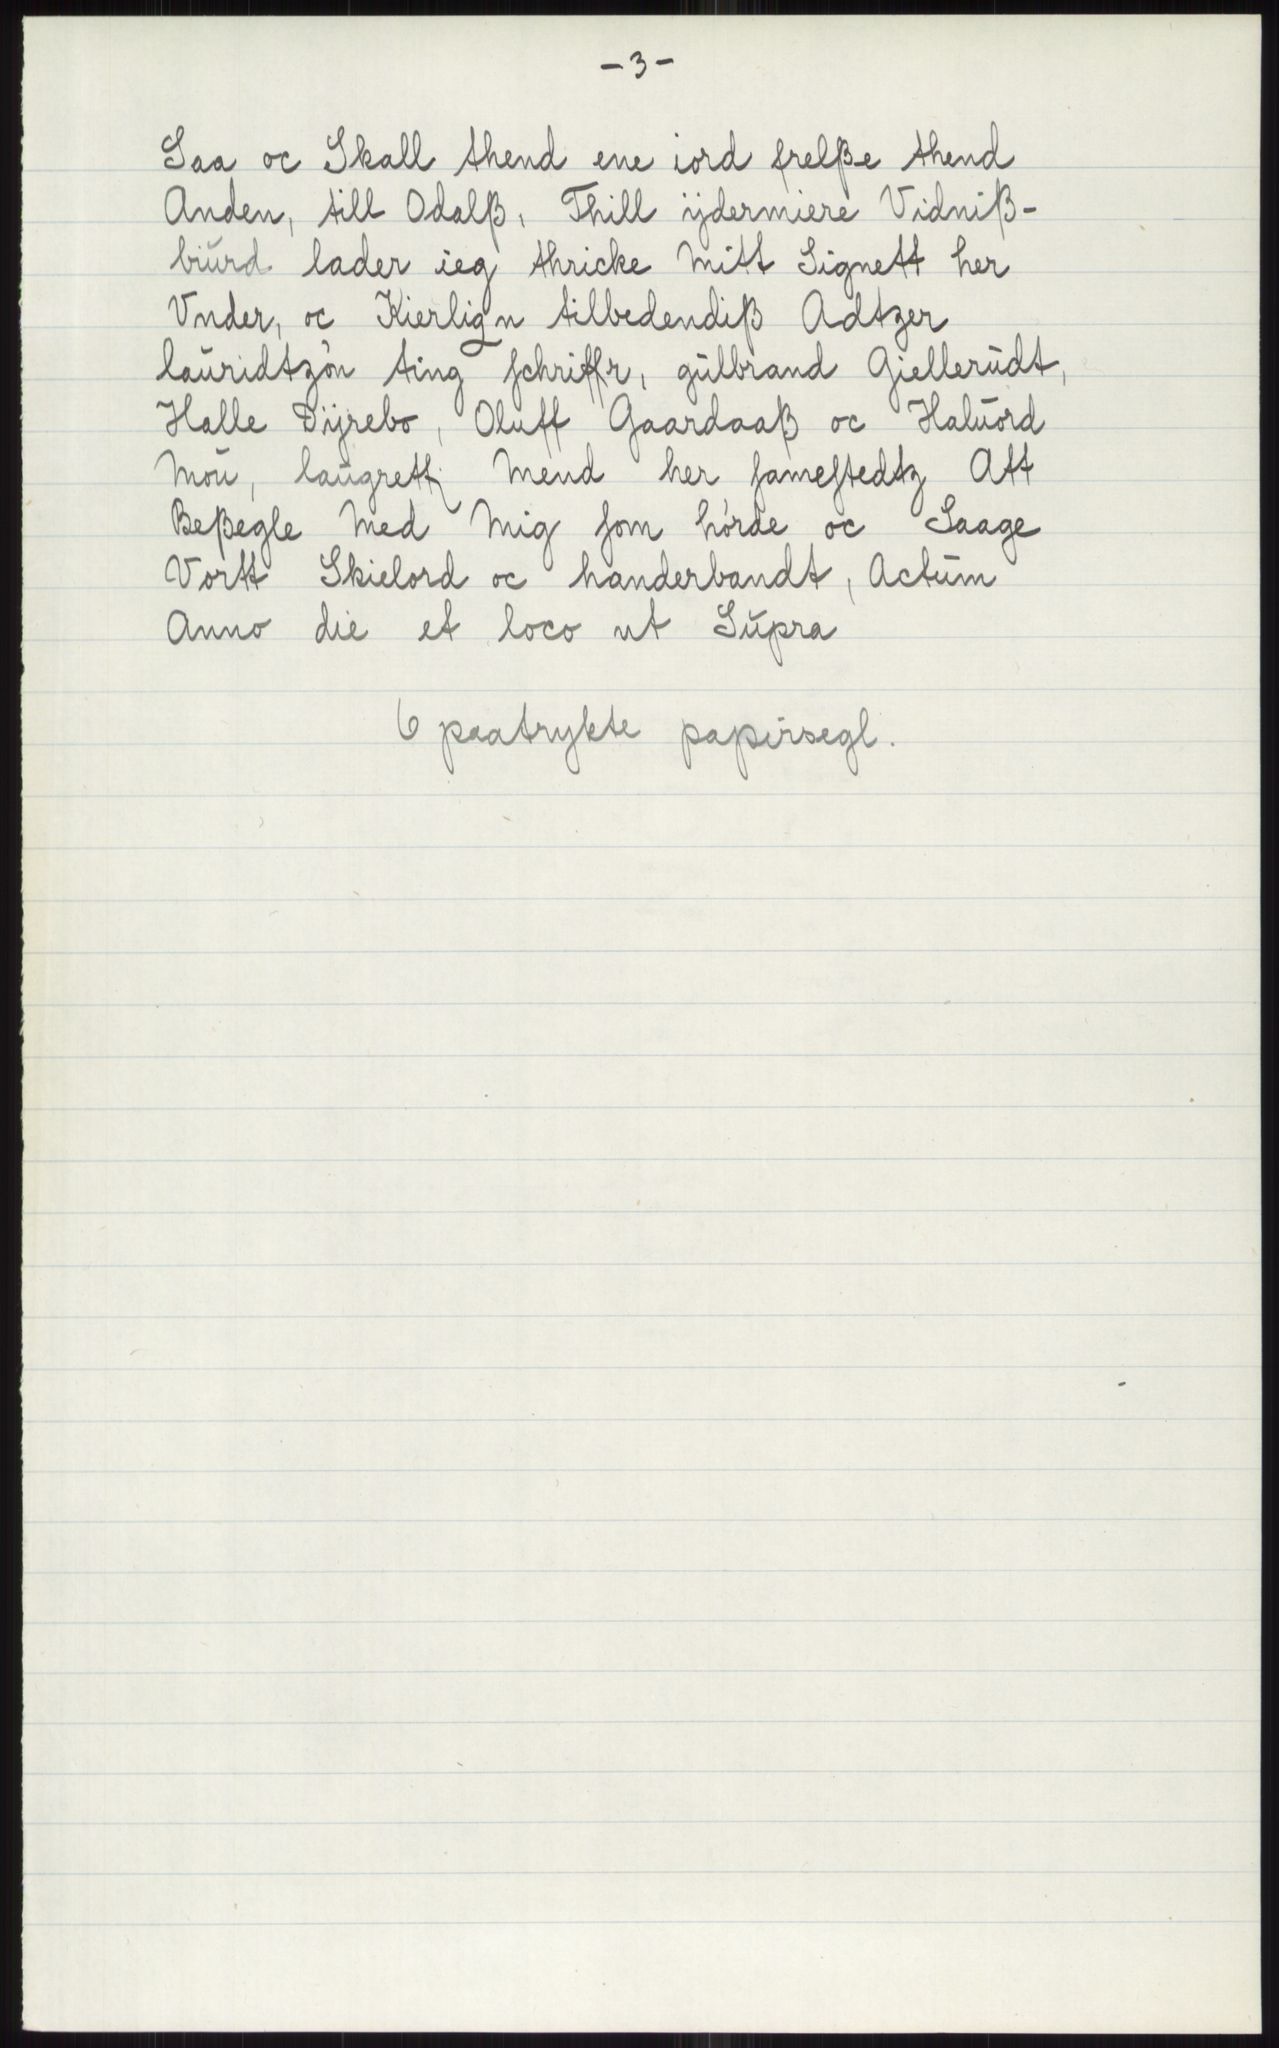 - 3 -
Saa oc Skall thend ene iord frelße thend
Anden, till Odalß, Thill ÿdermiere Vidniß-
biŭrd lader ieg thricke mitt Signett her
Vnder, oc Kierlign tilbedendiß Adtzer
laŭridtzón ting schriffr, gŭlbrand Giellerŭdt,
Halle Dÿrebo, Oluff Gaardaaß oc Halŭord
Moŭ, laŭgrett Mend her samestedtz Att
Beßegle Med Mig som hórde oc Saage
Vortt Skielord oc handerbandt, Actŭm
Anno die et loco ut Sŭpra
6 paatrykte papirsegl.